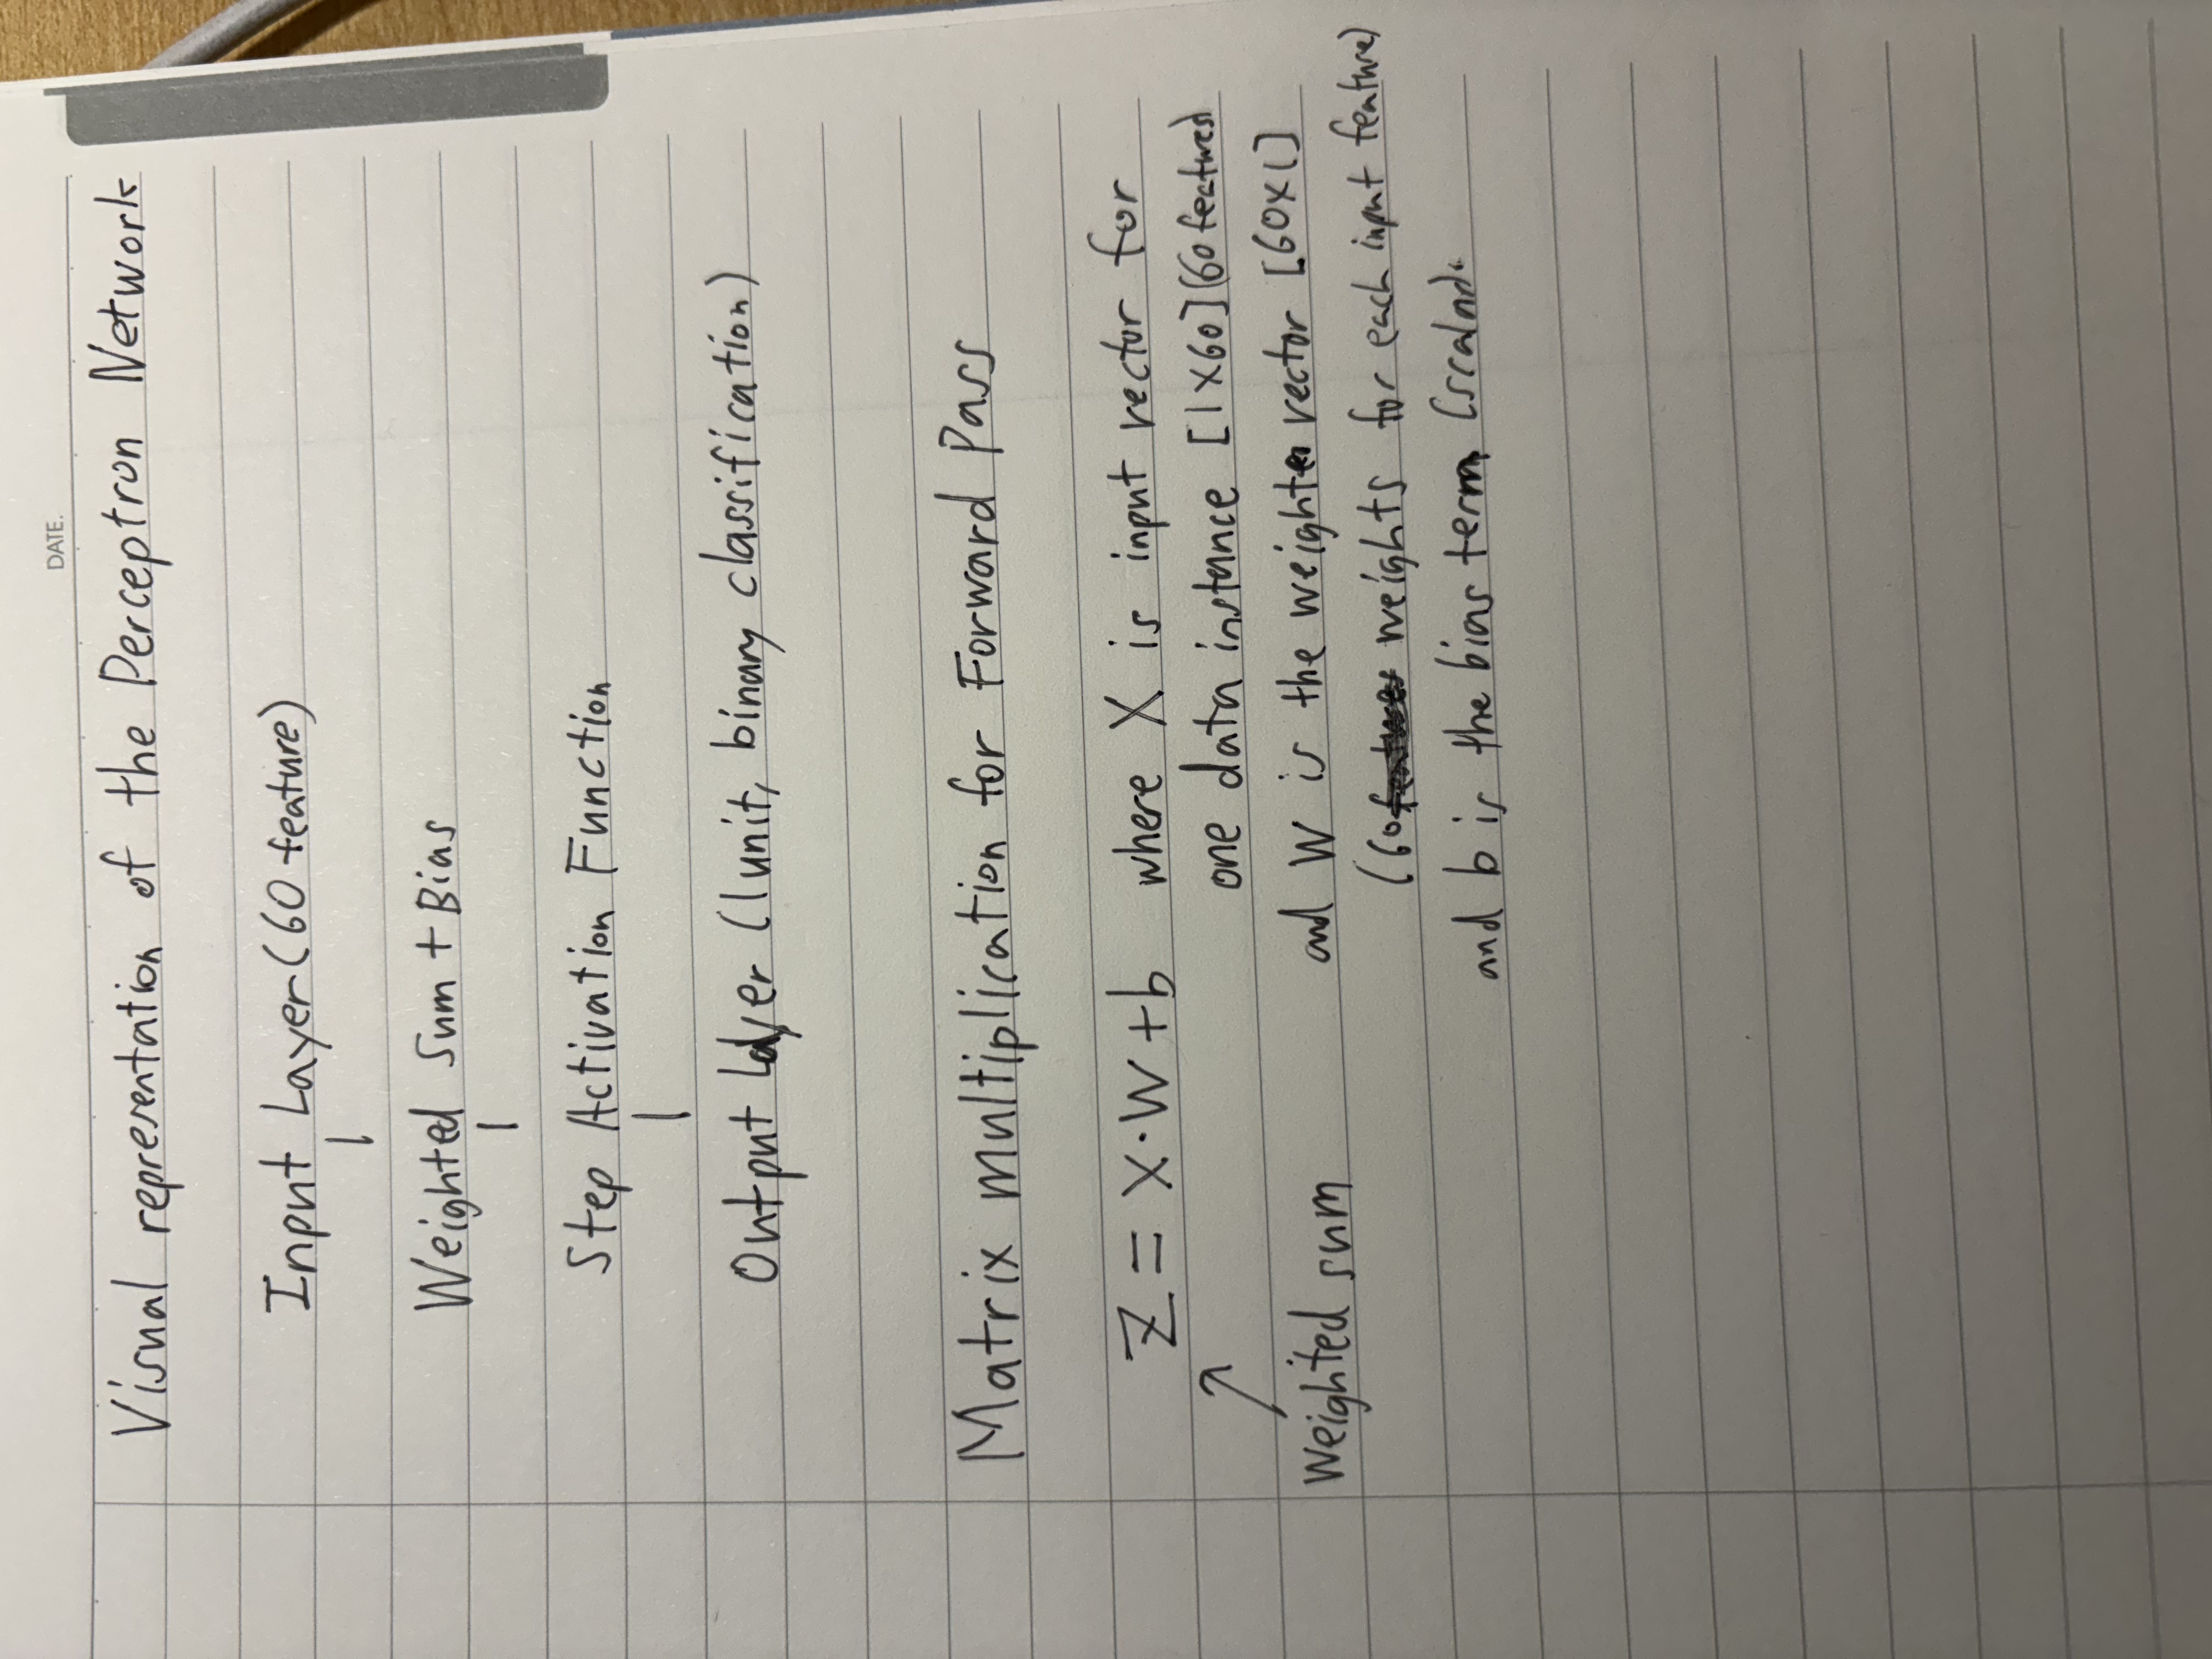 DATE.
Visual representation of the Perceptron Network
Input Layer (60 feature)
Weighted Sum + Bias
Step Activation Function
Output Layer (1 unit, binary classification)
Matrix multiplication for Forward Pass
Z = X·W + b where X is input vector for
one data instance [1X60] (60 features)
Weighted sum
and W is the weighter vector [60x1]
(60 weights for each input feature)
and b is the bias term (scalar).